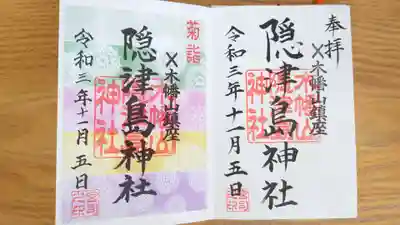 奉拝
木幡山鎮座
隠津島神社
令和三年十一月五日
菊詣
木幡山鎮座
隠津島神社
令和三年十一月五日